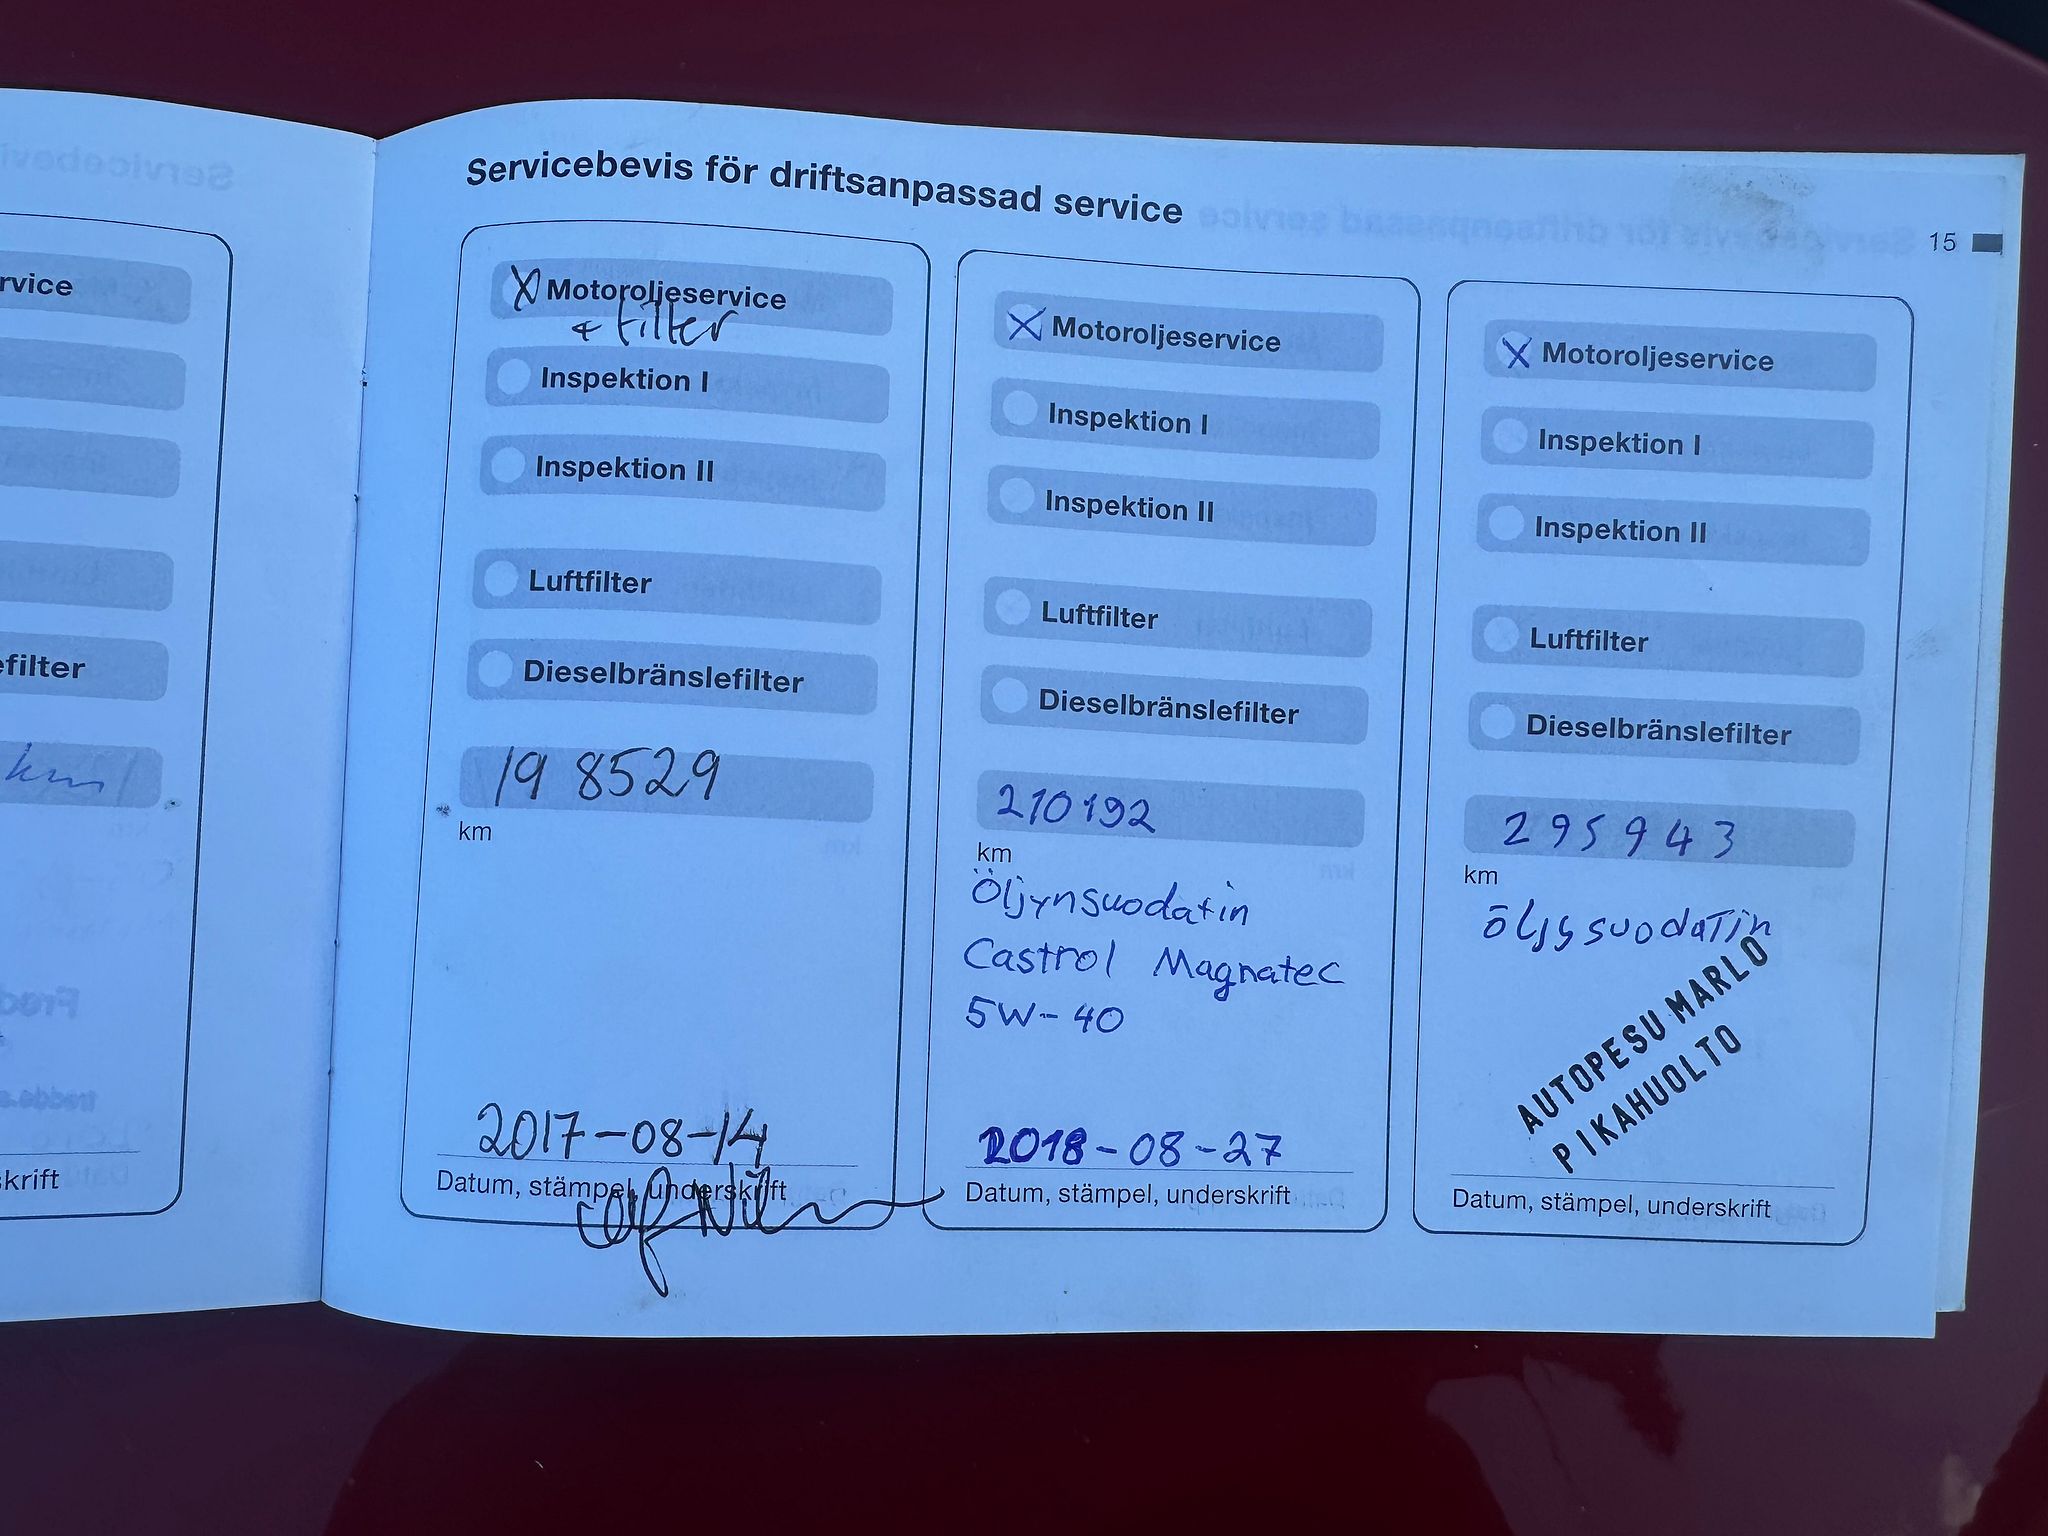 Servicebevis för driftsanpassad service
15
rvice
efilter
km
skrift
X Motoroljeservice
+ filter
Inspektion I
Inspektion II
Luftfilter
Dieselbränslefilter
19 8529
km
2017-08-14
Datum, stämpel, underskrift
X Motoroljeservice
Inspektion I
Inspektion II
Luftfilter
Dieselbränslefilter
210192
km
Öljynsuodatin
Castrol Magnatec
5W-40
2018-08-27
Datum, stämpel, underskrift
X Motoroljeservice
Inspektion I
Inspektion II
Luftfilter
Dieselbränslefilter
295943
km
öljysuodatin
AUTOPESU MARLO
PIKAHUOLTO
Datum, stämpel, underskrift